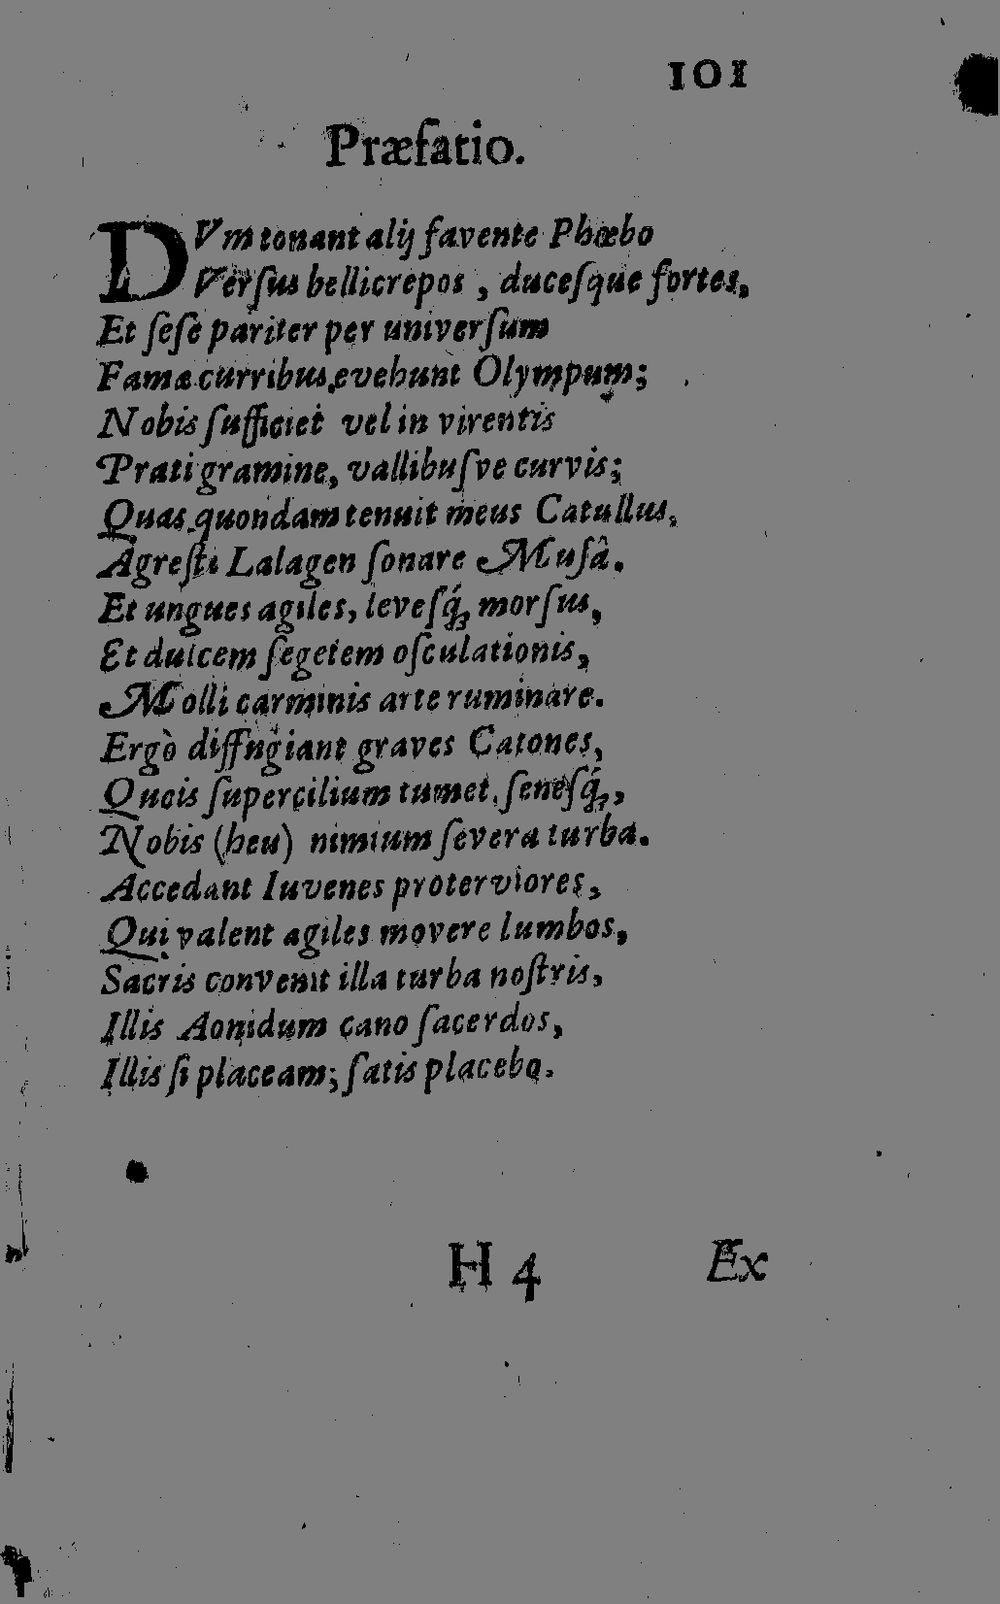 101
Præfatio.
DVm tonant alij favente Phœbo
Verſus bellicrepos, duceſque fortes,
Et ſeſe pariter per univerſum
Famæ curribus evehunt Olympum;
Nobis ſufficiet vel in virentis
Prati gramine, vallibuſve curvis;
Quas quondam tenuit meus Catullus,
Agreſti Lalagen ſonare Muſâ.
Et ungues agiles, leveſq́; morſus,
Et dulcem ſegetem oſculationis,
Molli carminis arte ruminare.
Ergò diffugiant graves Catones,
Queis ſupercilium tumet, ſeneſq́;,
Nobis (heu) nimium ſevera turba.
Accedant Iuvenes proterviores,
Qui valent agiles movere lumbos,
Sacris convenit illa turba noſtris,
Illis Aonidum cano ſacerdos,
Illis ſi placeam; ſatis placebo.
H 4 Ex